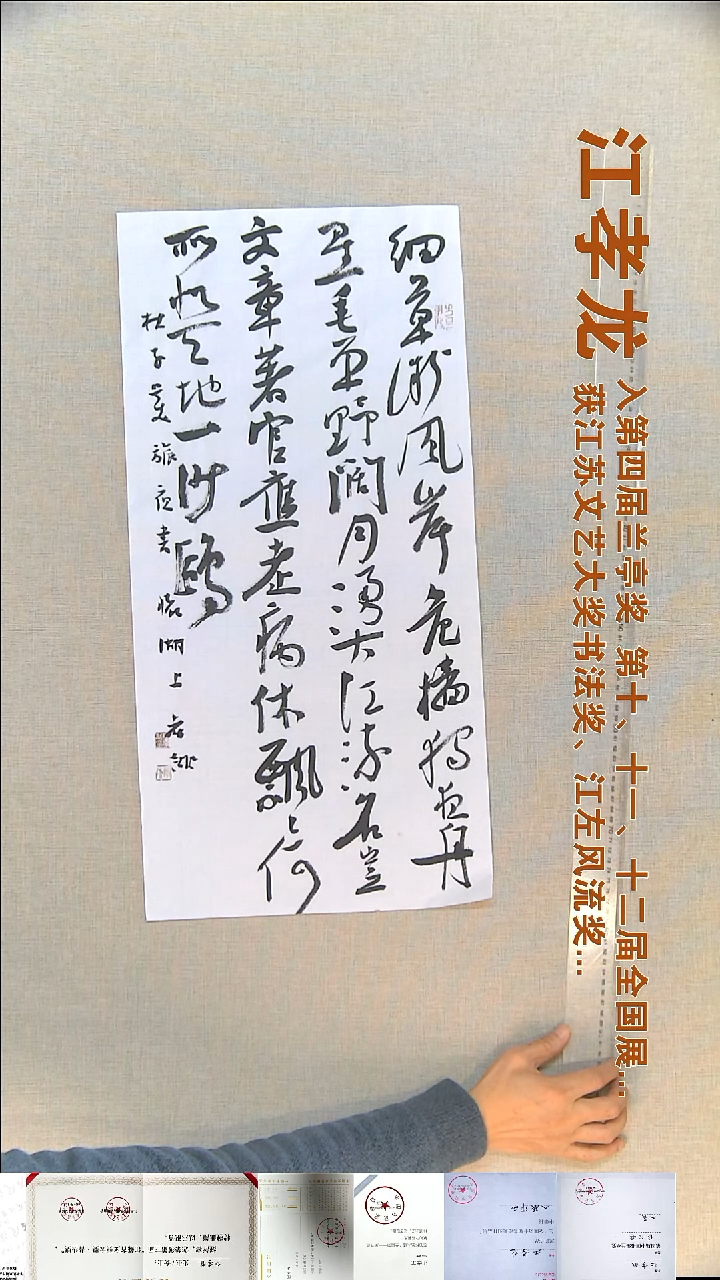 江孝龙
入第四届兰亭奖 第十、十一、十二届全国展...
获江苏文艺大奖书法奖、江左风流奖...
細草微风岸危檣獨夜舟
星垂平野闊月湧大江流名豈
文章著官應老病休飄〻何
所似天地一沙鷗
杜子美旅夜書懷湖上孝龍